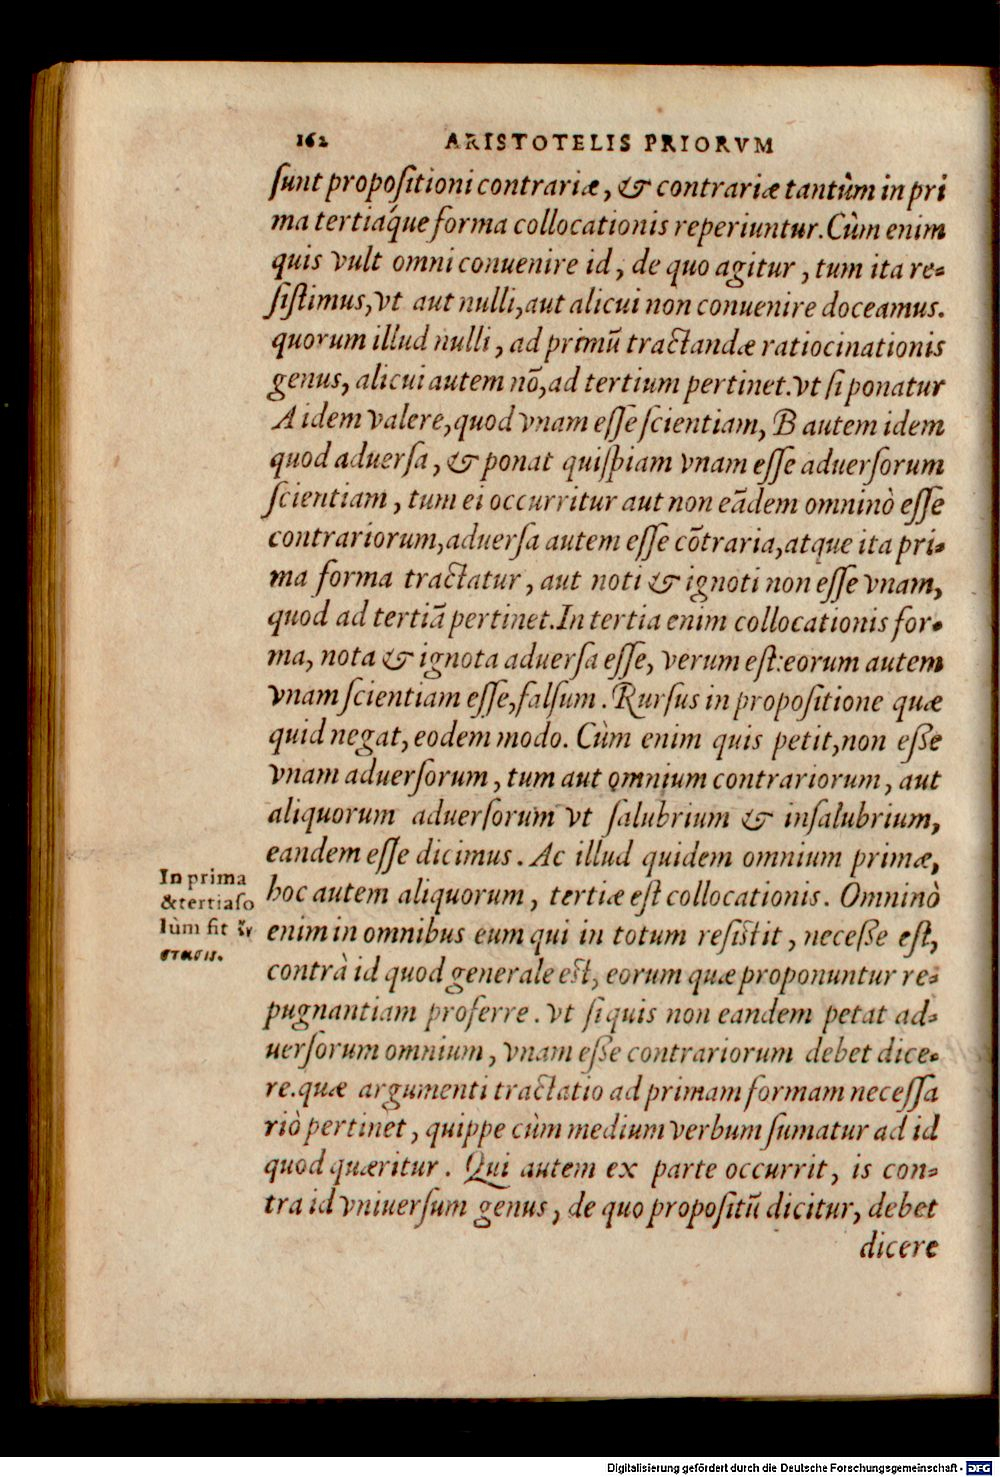 162 ARISTOTELIS PRIORVM
ſunt propoſitioni contrariæ, & contrariæ tantùm in pri
ma tertiáque forma collocationis reperiuntur. Cùm enim
quis vult omni conuenire id, de quo agitur, tum ita re-
ſiſtimus, vt aut nulli, aut alicui non conuenire doceamus.
quorum illud nulli, ad primū tractandæ ratiocinationis
genus, alicui autem nō, ad tertium pertinet. vt ſi ponatur
A idem valere, quod vnam eſſe ſcientiam, B autem idem
quod aduerſa, & ponat quiſpiam vnam eſſe aduerſorum
ſcientiam, tum ei occurritur aut non eādem omninò eſſe
contrariorum, aduerſa autem eſſe cōtraria, atque ita pri-
ma forma tractatur, aut noti & ignoti non eſſe vnam,
quod ad tertiā pertinet. In tertia enim collocationis for-
ma, nota & ignota aduerſa eſſe, verum eſt: eorum autem
vnam ſcientiam eſſe, falſum. Rurſus in propoſitione quæ
quid negat, eodem modo. Cùm enim quis petit, non eße
vnam aduerſorum, tum aut omnium contrariorum, aut
aliquorum aduerſorum vt ſalubrium & inſalubrium,
eandem eſſe dicimus. Ac illud quidem omnium primæ,
hoc autem aliquorum, tertiæ eſt collocationis. Omninò
enim in omnibus eum qui in totum reſiſtit, neceße eſt,
contrà id quod generale eſt, eorum quæ proponuntur re-
pugnantiam proferre. vt ſi quis non eandem petat ad-
uerſorum omnium, vnam eße contrariorum debet dice-
re. quæ argumenti tractatio ad primam formam neceſſa
riò pertinet, quippe cùm medium verbum ſumatur ad id
quod quæritur. Qui autem ex parte occurrit, is con-
tra id vniuerſum genus, de quo propoſitū dicitur, debet
dicere
In prima
& tertia ſo
lùm fit ἔν
στασις.
Digitalisierung gefördert durch die Deutsche Forschungsgemeinschaft - DFG